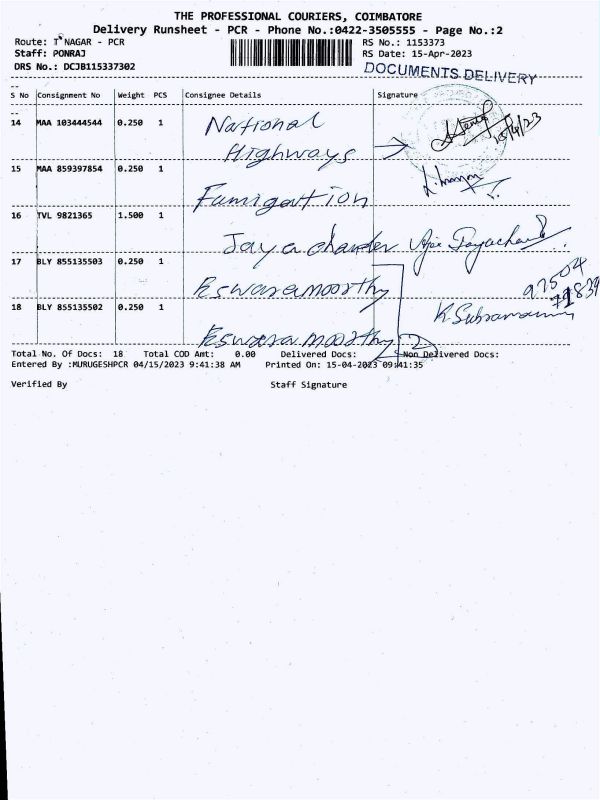 THE PROFESSIONAL COURIERS, COIMBATORE
Delivery Runsheet - PCR - Phone No.:0422-3505555 - Page No.:2
Route: T NAGAR - PCR
RS No.: 1153373
Staff: PONRAJ
RS Date: 15-Apr-2023
DRS No.: DCJB115337302
DOCUMENTS DELIVERY
S No Consignment No Weight PCS Consignee Details Signature
14 MAA 103444544 0.250 1 National
Highways
15/4/23
15 MAA 859397854 0.250 1
Fumigation
16 TVL 9821365 1.500 1
Jayachander
17 BLY 855135503 0.250 1
Eswaramoorthy
97504
71839
18 BLY 855135502 0.250 1
K. Subramani
Eswaramoorthy 2
Total No. Of Docs: 18 Total COD Amt: 0.00 Delivered Docs: Non Delivered Docs:
Entered By :MURUGESHPCR 04/15/2023 9:41:38 AM Printed On: 15-04-2023 09:41:35
Verified By Staff Signature